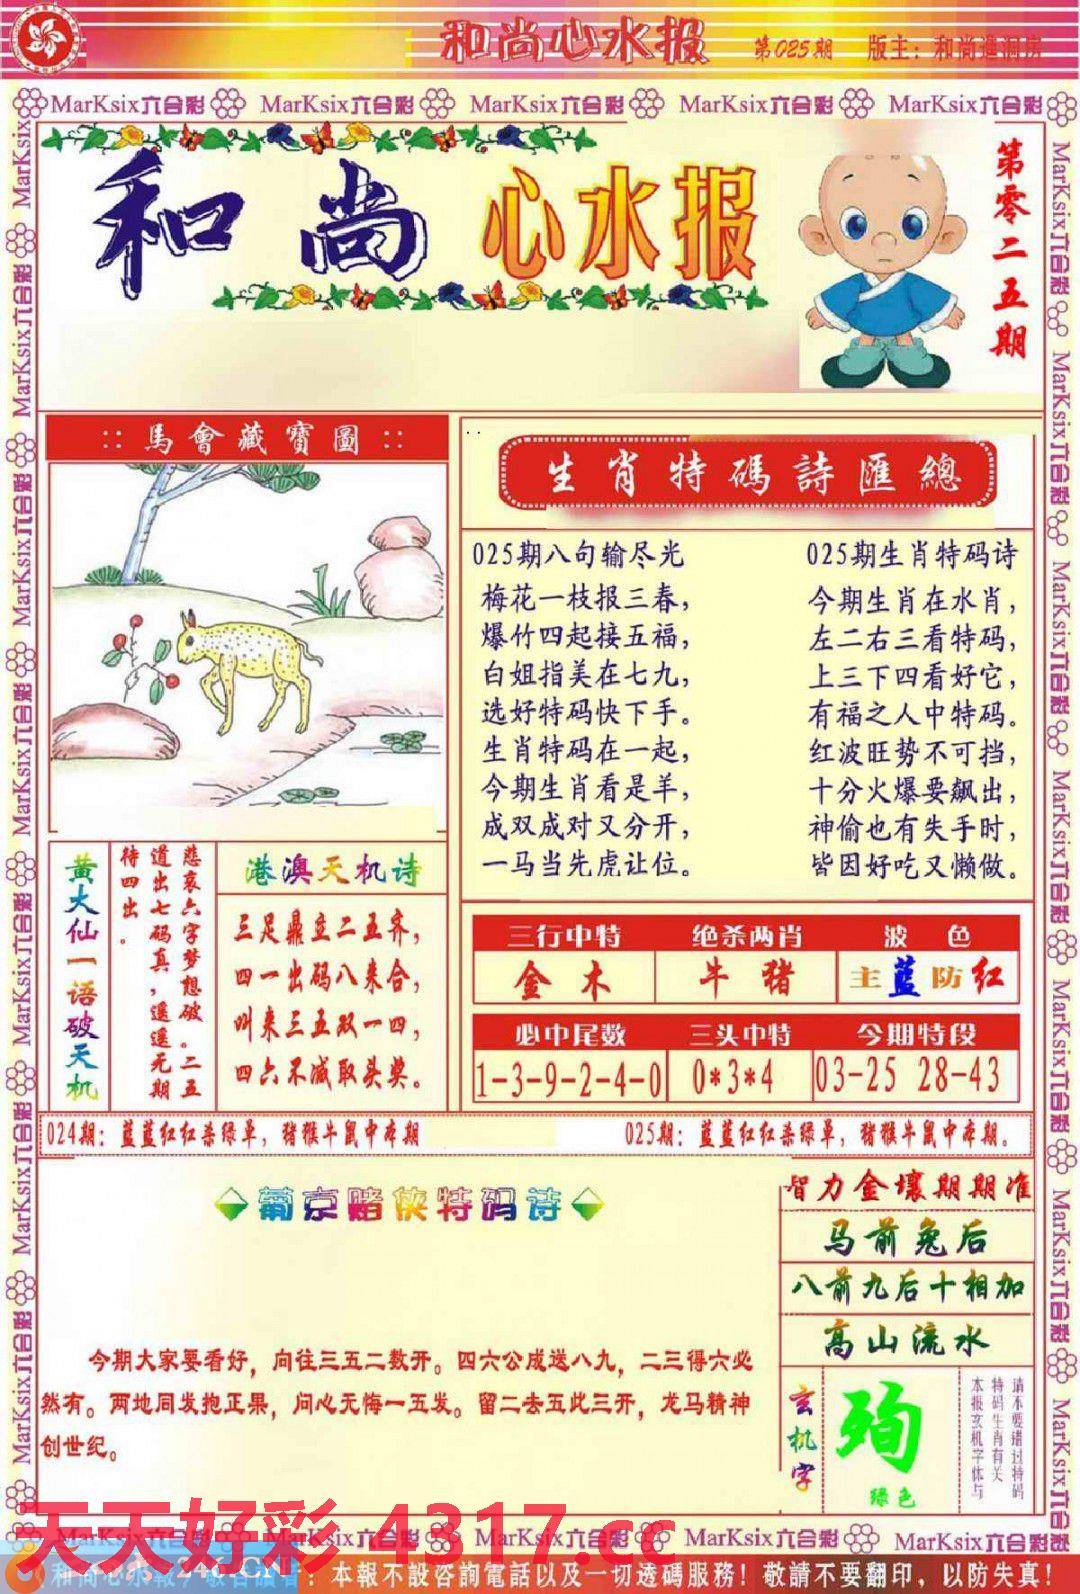 和尚心水报 第025期 版主：和尚進洞房
MarKsix六合彩 MarKsix六合彩 MarKsix六合彩 MarKsix六合彩 MarKsix六合彩
和尚心水报
第零二五期
:: 馬會藏寶圖 ::
生肖特碼詩匯總
025期八句输尽光
梅花一枝报三春，
爆竹四起接五福，
白姐指美在七九，
选好特码快下手。
生肖特码在一起，
今期生肖看是羊，
成双成对又分开，
一马当先虎让位。
025期生肖特码诗
今期生肖在水肖，
左二右三看特码，
上三下四看好它，
有福之人中特码。
红波旺势不可挡，
十分火爆要飙出，
神偷也有失手时，
皆因好吃又懒做。
黄大仙一语破天机
悲哀六字梦想破。二五
道出七码真，遥遥无期
待四出。
港澳天机诗
三足鼎立二五齐，
四一出码八来合，
叫来三五双一四，
四六不减取头奖。
三行中特 绝杀两肖 波色
金木 牛猪 主蓝防红
必中尾数 三头中特 今期特段
1-3-9-2-4-0 0*3*4 03-25 28-43
024期：蓝蓝红红杀绿单，猪猴牛鼠中本期
025期：蓝蓝红红杀绿单，猪猴牛鼠中本期。
葡京赌侠特码诗
今期大家要看好，向往三五二数开。四六公成送八九，二三得六必
然有。两地同发抱正果，问心无悔一五发。留二去五此三开，龙马精神
创世纪。
智力金壤期期准
马前兔后
八前九后十相加
高山流水
玄机字
殉
绿色
请不要错过特码
特码生肖有关
本报玄机字体与
MarKsix六合彩 MarKsix六合彩 MarKsix六合彩 MarKsix六合彩
天天好彩 4317.cc
本報不設咨詢電話以及一切透碼服務！敬請不要翻印，以防失真！